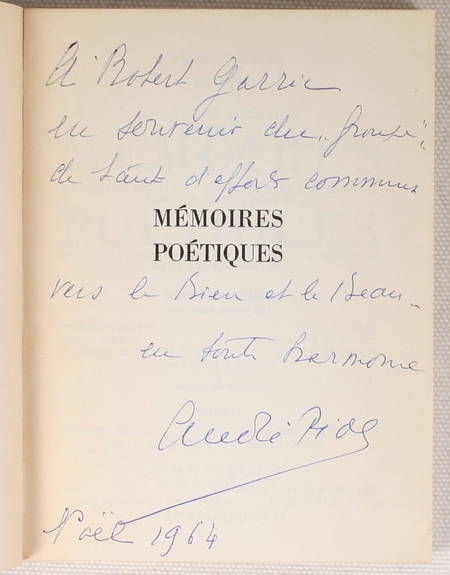 A Robert Garric
en souvenir du "Groupe",
de tant d'efforts communs
MÉMOIRES
POÉTIQUES
vers le Bien et le Beau _
en toute harmonie
André
Noël 1964